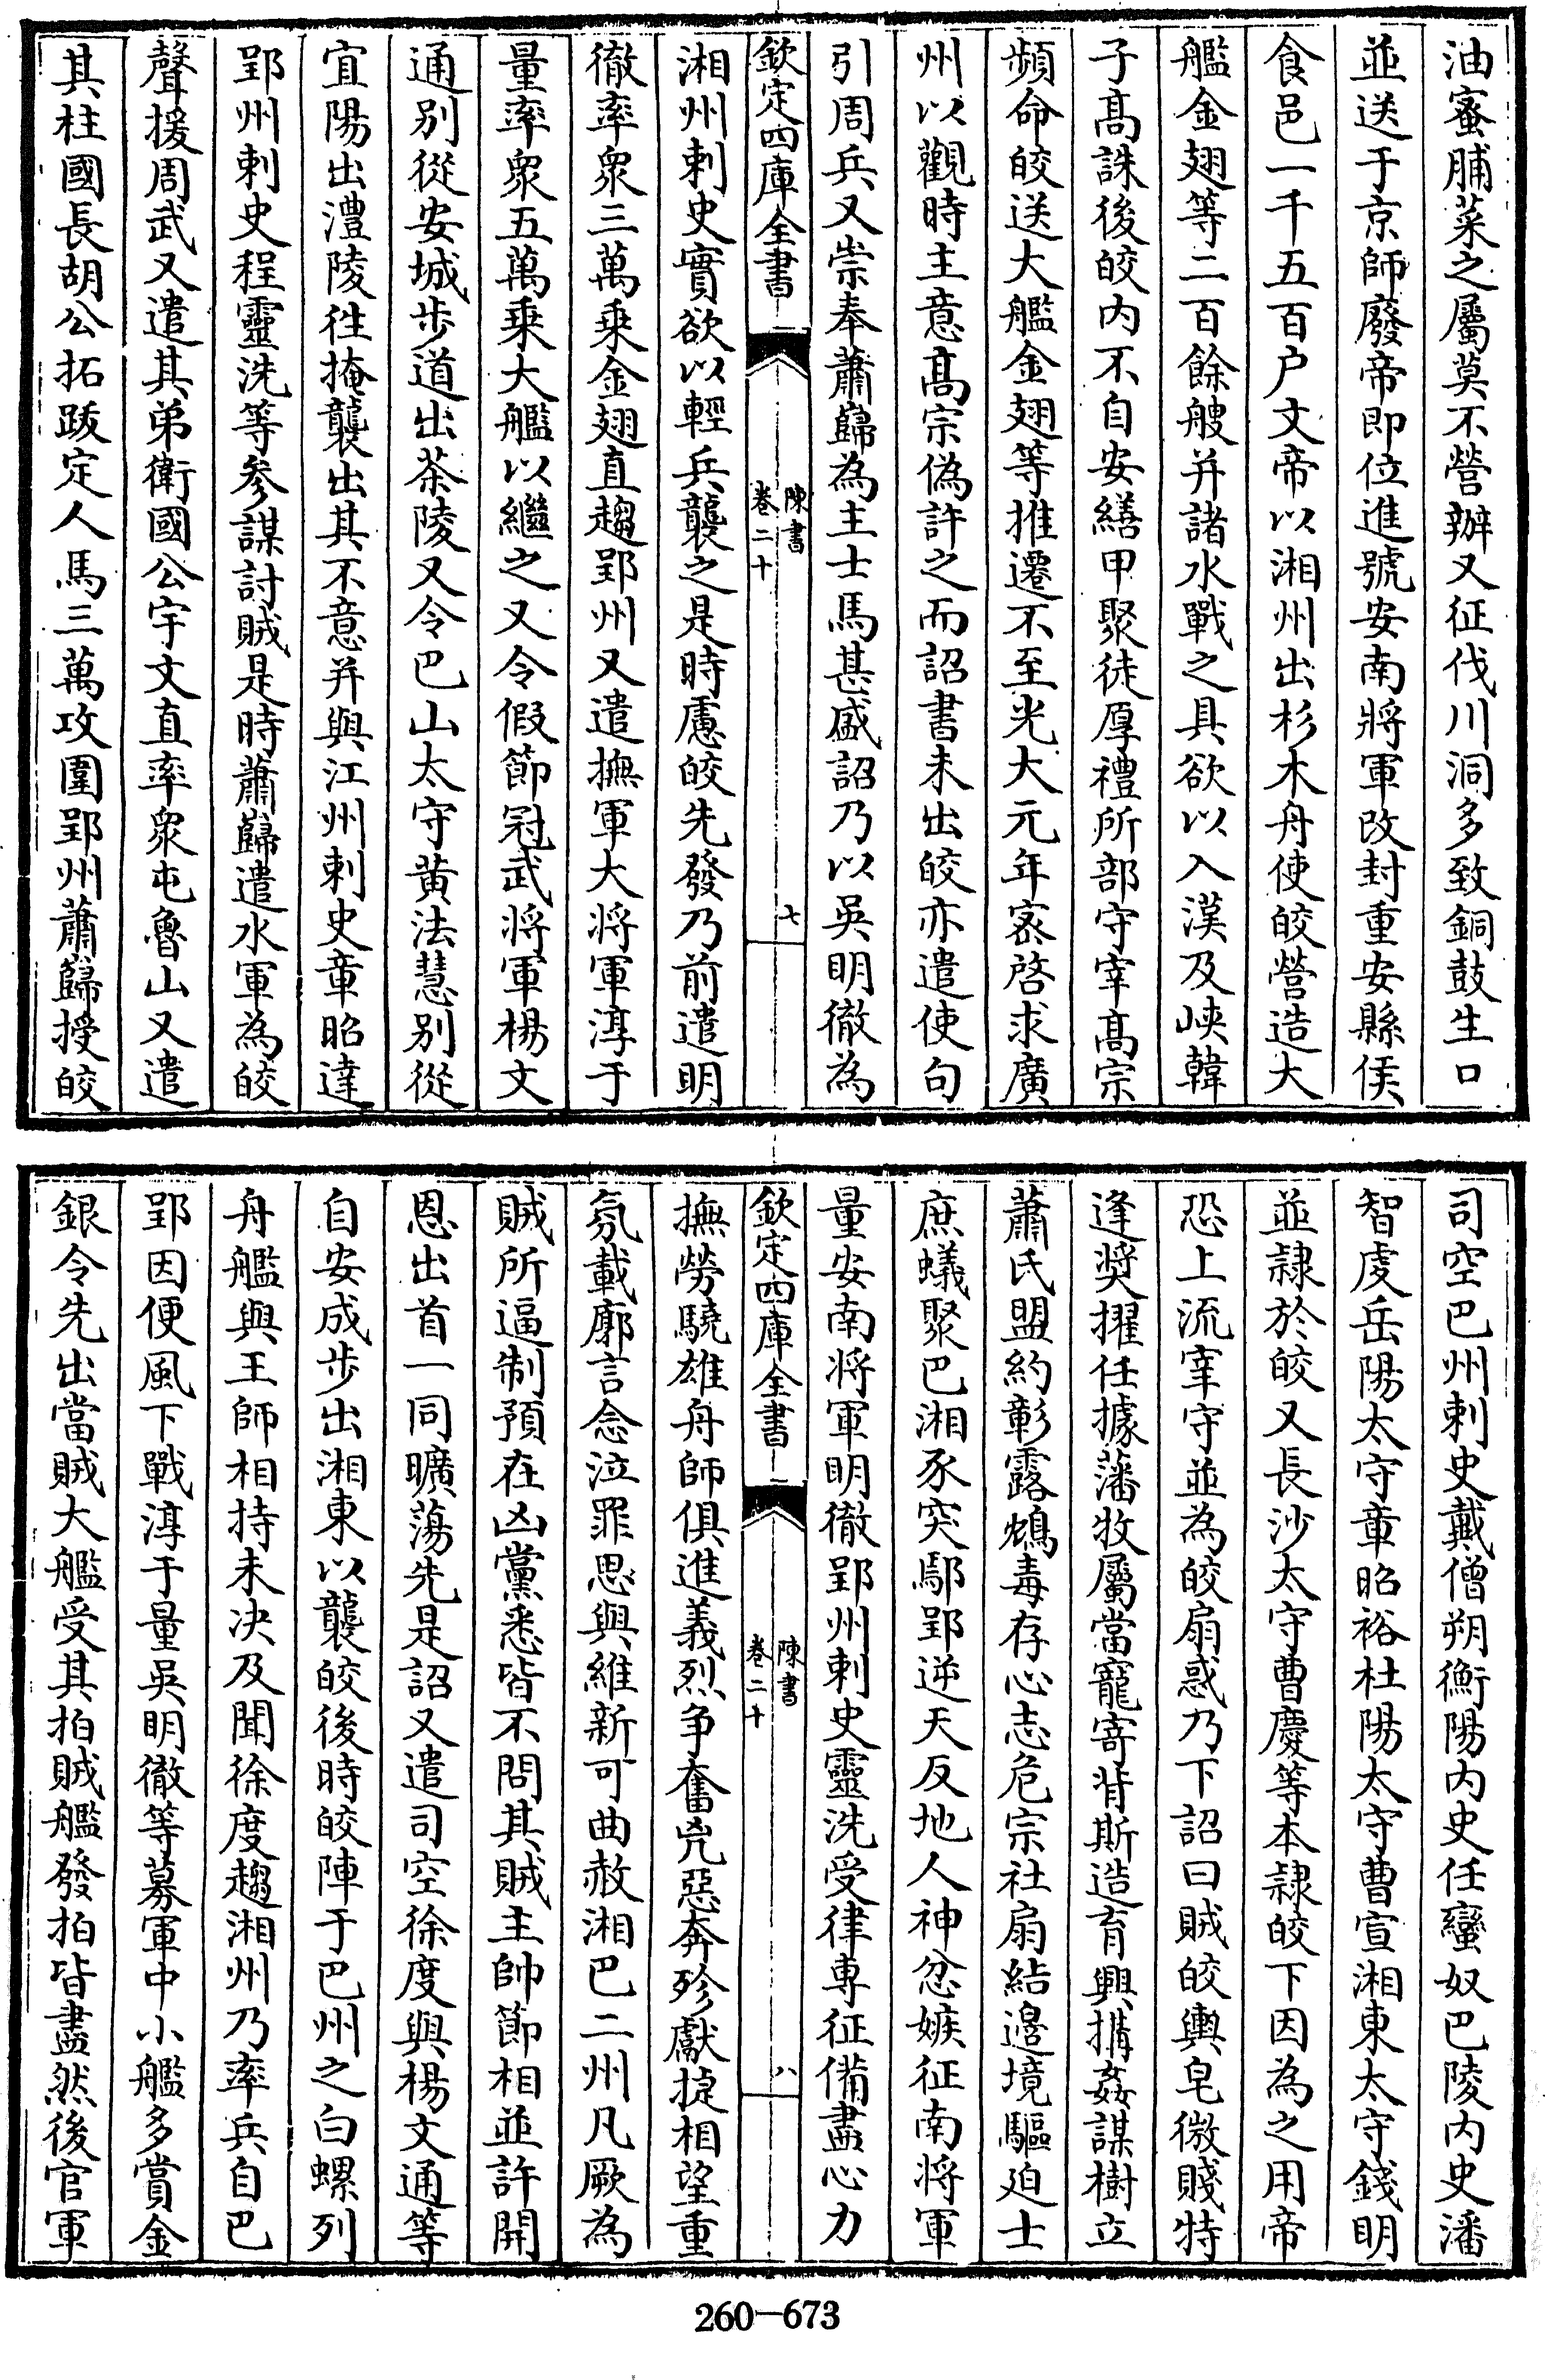 油蜜脯菜之屬莫不營辦又征伐川洞多致銅鼓生口
並送于京師廢帝即位進號安南將軍改封重安縣侯
食邑一千五百户文帝以湘州出杉木舟使皎營造大
艦金翅等二百餘艘并諸水戰之具欲以入漢及峽韓
子髙誅後皎内不自安繕甲聚徒厚禮所部守宰髙宗
頻命皎送大艦金翅等推遷不至光大元年宻啓求廣
州以觀時主意髙宗偽許之而詔書未出皎亦遣使句
引周兵又崇奉蕭巋為主士馬甚盛詔乃以吳明徹為
欽定四庫全書
陳書
卷二十
七
湘州刺史實欲以輕兵襲之是時慮皎先發乃前遣明
徹率衆三萬乗金翅直趨郢州又遣撫軍大將軍淳于
量率衆五萬乗大艦以繼之又令假節冠武將軍楊文
通别從安城步道出茶陵又令巴山太守黄法慧别從
宜陽出澧陵徃掩襲出其不意并與江州刺史章昭達
郢州刺史程靈洗等參謀討賊是時蕭巋遣水軍為皎
聲援周武又遣其弟衛國公宇文直率衆屯魯山又遣
其柱國長胡公拓跋定人馬三萬攻圍郢州蕭巋授皎
司空巴州刺史戴僧朔衡陽内史任蠻奴巴陵内史潘
智虔岳陽太守章昭裕杜陽太守曹宣湘東太守錢明
並隷於皎又長沙太守曹慶等本隷皎下因為之用帝
恐上流宰守並為皎扇惑乃下詔曰賊皎輿皂微賤特
逢奬擢任據藩牧屬當寵寄背斯造育興搆姦謀樹立
蕭氏盟約彰露鴆毒存心志危宗社扇結邊境驅廹士
庶蟻聚巴湘豕突鄢郢逆天反地人神忿嫉征南將軍
量安南將軍明徹郢州刺史靈洗受律専征備盡心力
欽定四庫全書
陳書
卷二十
八
撫勞驍雄舟師俱進義烈争奮兇惡奔殄獻捷相望重
氛載廓言念泣罪思與維新可曲赦湘巴二州凡厥為
賊所逼制預在凶黨悉皆不問其賊主帥節相並許開
恩出首一同曠蕩先是詔又遣司空徐度與楊文通等
自安成步出湘東以襲皎後時皎陣于巴州之白螺列
舟艦與王師相持未决及聞徐度趨湘州乃率兵自巴
郢因便風下戰淳于量吳明徹等募軍中小艦多賞金
銀令先出當賊大艦受其拍賊艦發拍皆盡然後官軍
260-673